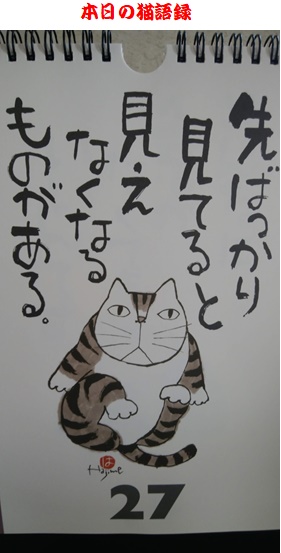 本日の猫語録
先ばっかり
見てると
見え
なくなる
ものがある。
は
Hajime
27